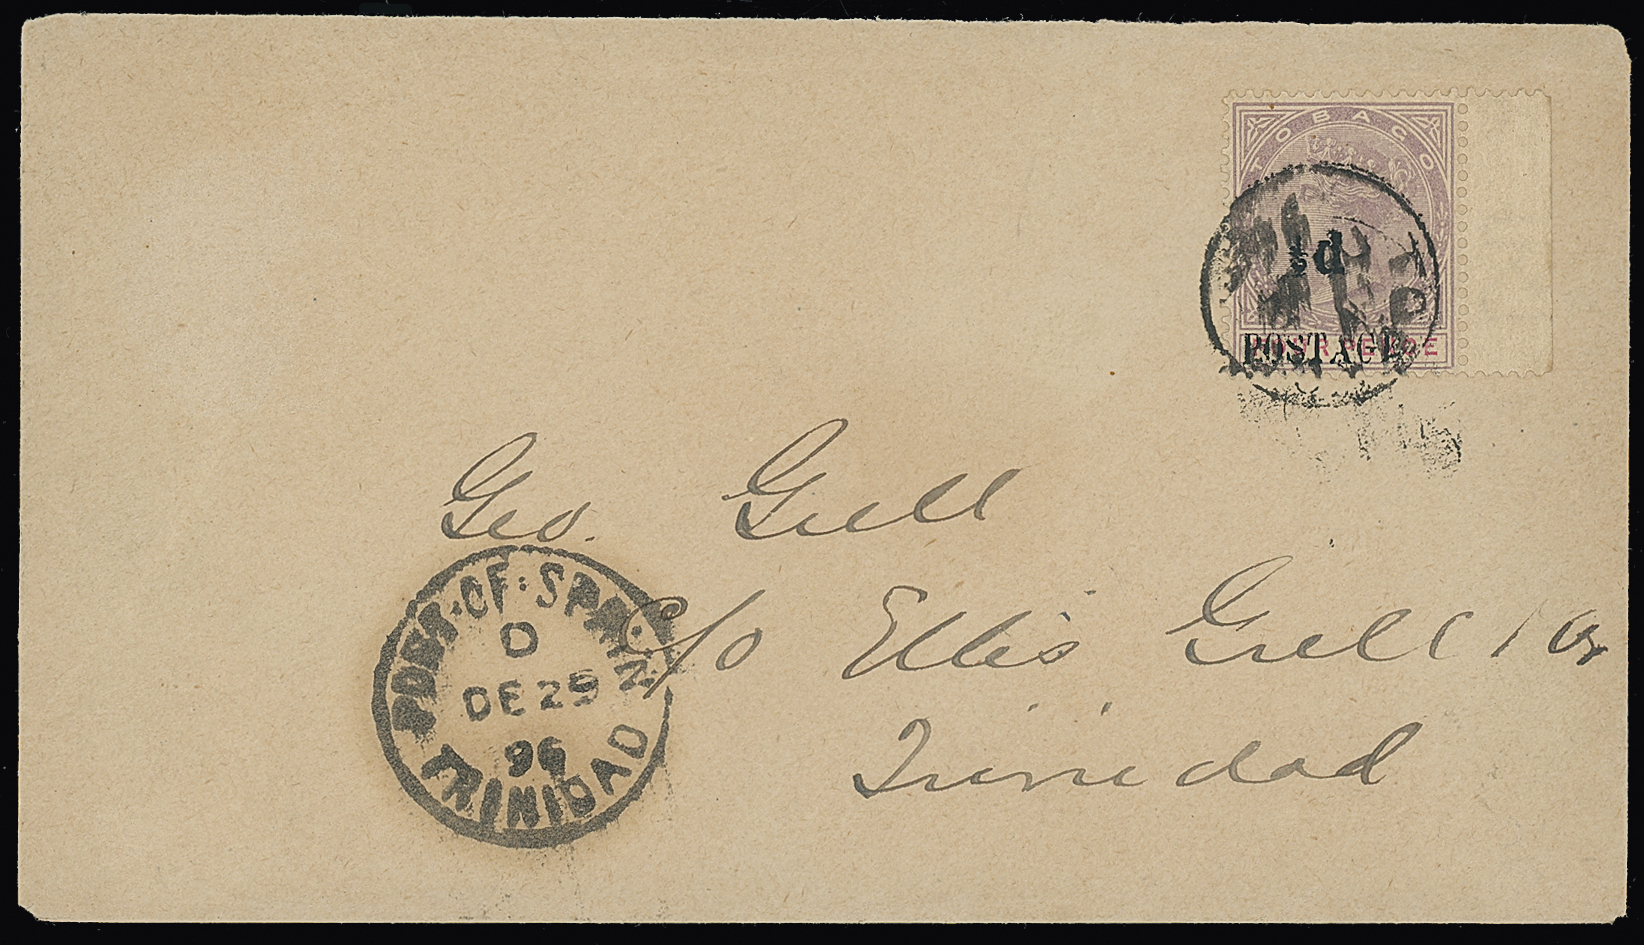 TOBAGO
½d
POSTAGE
FOUR PENCE
TO
Geo. Grell
c/o Ellis Grell & Co
Trinidad
PORT·OF·SPAIN
D
DE 29
96
TRINIDAD